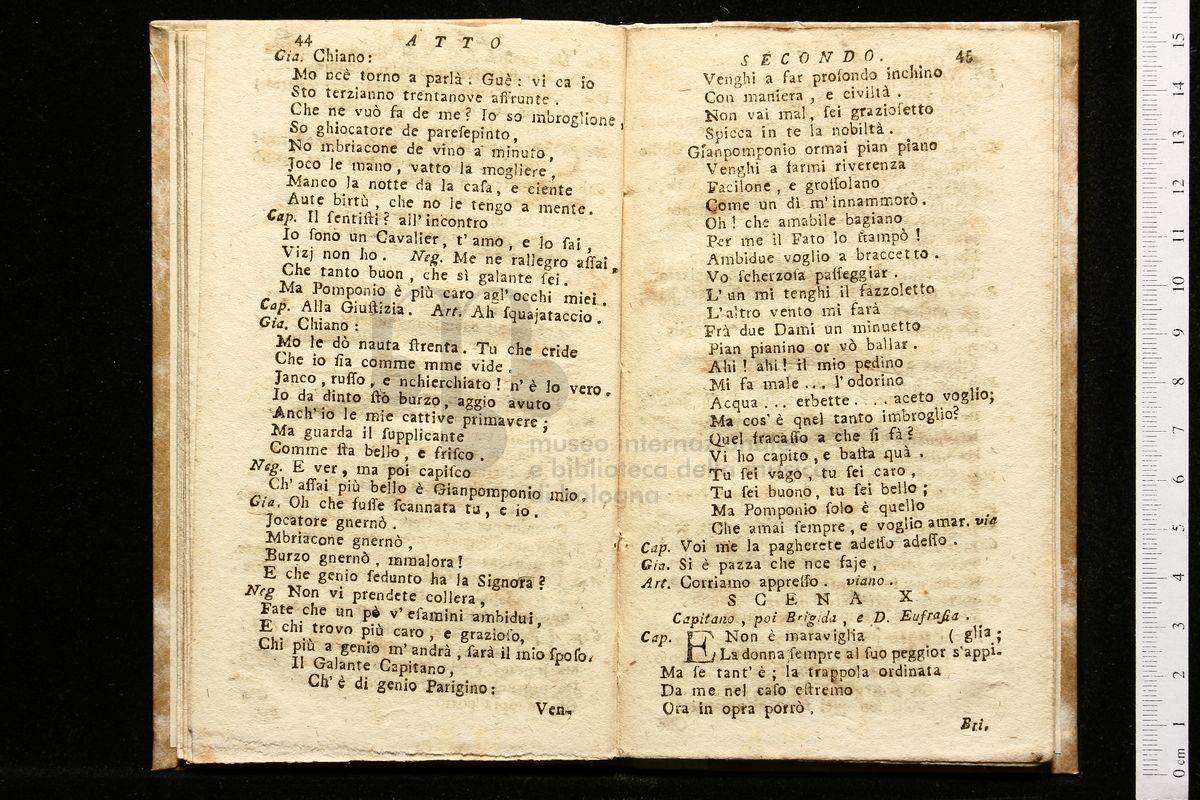 44 ATTO
Gia. Chiano:
Mo ncè torno a parlà. Guè: vi ca io
Sto terzianno trentanove affrunte.
Che ne vuò fa de me? Io so mbroglione,
So ghiocatore de paresepinto,
No mbriacone de vino a minuto,
Joco le mano, vatto la mogliere,
Manco la notte da la casa, e ciente
Aute birtù, che no le tengo a mente.
Cap. Il sentisti? all'incontro
Io sono un Cavalier, t'amo, e lo sai,
Vizj non ho. Neg. Me ne rallegro assai,
Che tanto buon, che sì galante sei.
Ma Pomponio è più caro agl'occhi miei.
Cap. Alla Giustizia. Art. Ah squajataccio.
Gia. Chiano:
Mo le dò nauta strenta. Tu che cride
Che io sia comme mme vide.
Janco, russo, e nchierchiato! n'è lo vero.
Io da dinto stò burzo, aggio avuto
Anch'io le mie cattive primavere;
Ma guarda il supplicante
Comme sta bello, e frisco.
Neg. E ver, ma poi capisco
Ch'assai più bello è Gianpomponio mio.
Gia. Oh che fusse scannata tu, e io.
Jocatore gnernò.
Mbriacone gnernò,
Burzo gnernò, mmalora!
E che genio sedunto ha la Signora?
Neg Non vi prendete collera,
Fate che un pò v'esamini ambidui,
E chi trovo più caro, e grazioso,
Chi più a genio m'andrà, sarà il mio sposo.
Il Galante Capitano,
Ch'è di genio Parigino:
Ven-
SECONDO. 45
Venghi a far profondo inchino
Con maniera, e civiltà.
Non vai mal, sei graziosetto
Spicca in te la nobiltà.
Gianpomponio ormai pian piano
Venghi a farmi riverenza
Facilone, e grossolano
Come un dì m'innammorò.
Oh! che amabile bagiano
Per me il Fato lo stampò!
Ambidue voglio a braccetto.
Vo scherzosa passeggiar.
L'un mi tenghi il fazzoletto
L'altro vento mi farà
Frà due Dami un minuetto
Pian pianino or vò ballar.
Ahi! ahi! il mio pedino
Mi fa male... l'odorino
Acqua... erbette.... aceto voglio;
Ma cos'è qnel tanto imbroglio?
Quel fracasso a che si fà?
Vi ho capito, e basta quà.
Tu sei vago, tu sei caro,
Tu sei buono, tu sei bello;
Ma Pomponio solo è quello
Che amai sempre, e voglio amar. via
Cap. Voi me la pagherete adesso adesso.
Gia. Si è pazza che nce faje,
Art. Corriamo appresso. viano.
SCENA X
Capitano, poi Brigida, e D. Eufrasia.
Cap. E Non è maraviglia ( glia;
La donna sempre al suo peggior s'appi-
Ma se tant'è; la trappola ordinata
Da me nel caso estremo
Ora in opra porrò.
Bri.
museo internazionale
e biblioteca della musica
di bologna
0 cm 1 2 3 4 5 6 7 8 9 10 11 12 13 14 15